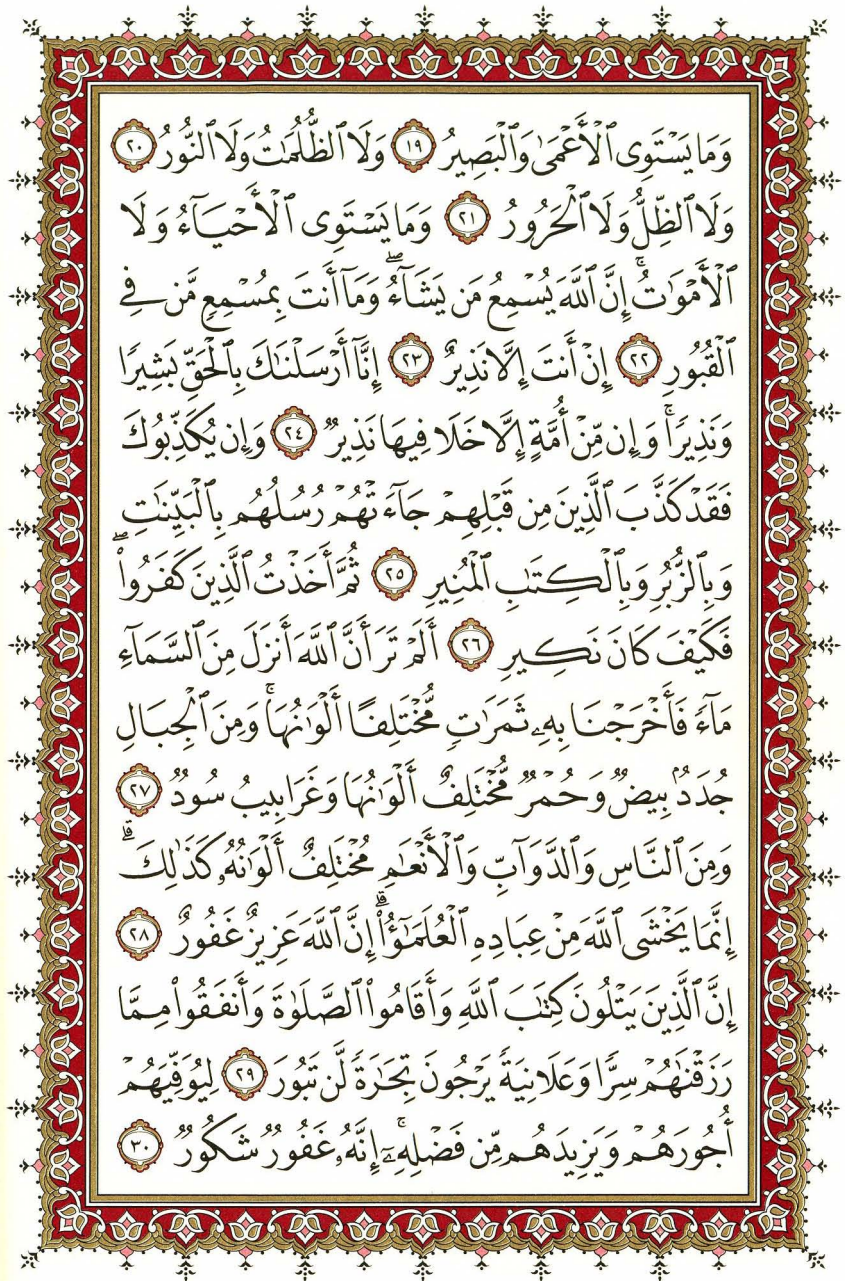 وَمَا يَسْتَوِى ٱلْأَعْمَىٰ وَٱلْبَصِيرُ ١٩ وَلَا ٱلظُّلُمَـٰتُ وَلَا ٱلنُّورُ ٢٠
وَلَا ٱلظِّلُّ وَلَا ٱلْحَرُورُ ٢١ وَمَا يَسْتَوِى ٱلْأَحْيَآءُ وَلَا
ٱلْأَمْوَٰتُ ۚ إِنَّ ٱللَّهَ يُسْمِعُ مَن يَشَآءُ ۖ وَمَآ أَنتَ بِمُسْمِعٍ مَّن فِى
ٱلْقُبُورِ ٢٢ إِنْ أَنتَ إِلَّا نَذِيرٌ ٢٣ إِنَّآ أَرْسَلْنَـٰكَ بِٱلْحَقِّ بَشِيرًا
وَنَذِيرًا ۚ وَإِن مِّنْ أُمَّةٍ إِلَّا خَلَا فِيهَا نَذِيرٌ ٢٤ وَإِن يُكَذِّبُوكَ
فَقَدْ كَذَّبَ ٱلَّذِينَ مِن قَبْلِهِمْ جَآءَتْهُمْ رُسُلُهُم بِٱلْبَيِّنَـٰتِ
وَبِٱلزُّبُرِ وَبِٱلْكِتَـٰبِ ٱلْمُنِيرِ ٢٥ ثُمَّ أَخَذْتُ ٱلَّذِينَ كَفَرُوا۟ ۖ
فَكَيْفَ كَانَ نَكِيرِ ٢٦ أَلَمْ تَرَ أَنَّ ٱللَّهَ أَنزَلَ مِنَ ٱلسَّمَآءِ
مَآءً فَأَخْرَجْنَا بِهِۦ ثَمَرَٰتٍ مُّخْتَلِفًا أَلْوَٰنُهَا ۚ وَمِنَ ٱلْجِبَالِ
جُدَدٌۢ بِيضٌ وَحُمْرٌ مُّخْتَلِفٌ أَلْوَٰنُهَا وَغَرَابِيبُ سُودٌ ٢٧
وَمِنَ ٱلنَّاسِ وَٱلدَّوَآبِّ وَٱلْأَنْعَـٰمِ مُخْتَلِفٌ أَلْوَٰنُهُۥ كَذَٰلِكَ ۗ
إِنَّمَا يَخْشَى ٱللَّهَ مِنْ عِبَادِهِ ٱلْعُلَمَـٰٓؤُا۟ ۗ إِنَّ ٱللَّهَ عَزِيزٌ غَفُورٌ ٢٨
إِنَّ ٱلَّذِينَ يَتْلُونَ كِتَـٰبَ ٱللَّهِ وَأَقَامُوا۟ ٱلصَّلَوٰةَ وَأَنفَقُوا۟ مِمَّا
رَزَقْنَـٰهُمْ سِرًّا وَعَلَانِيَةً يَرْجُونَ تِجَـٰرَةً لَّن تَبُورَ ٢٩ لِيُوَفِّيَهُمْ
أُجُورَهُمْ وَيَزِيدَهُم مِّن فَضْلِهِۦٓ ۚ إِنَّهُۥ غَفُورٌ شَكُورٌ ٣٠